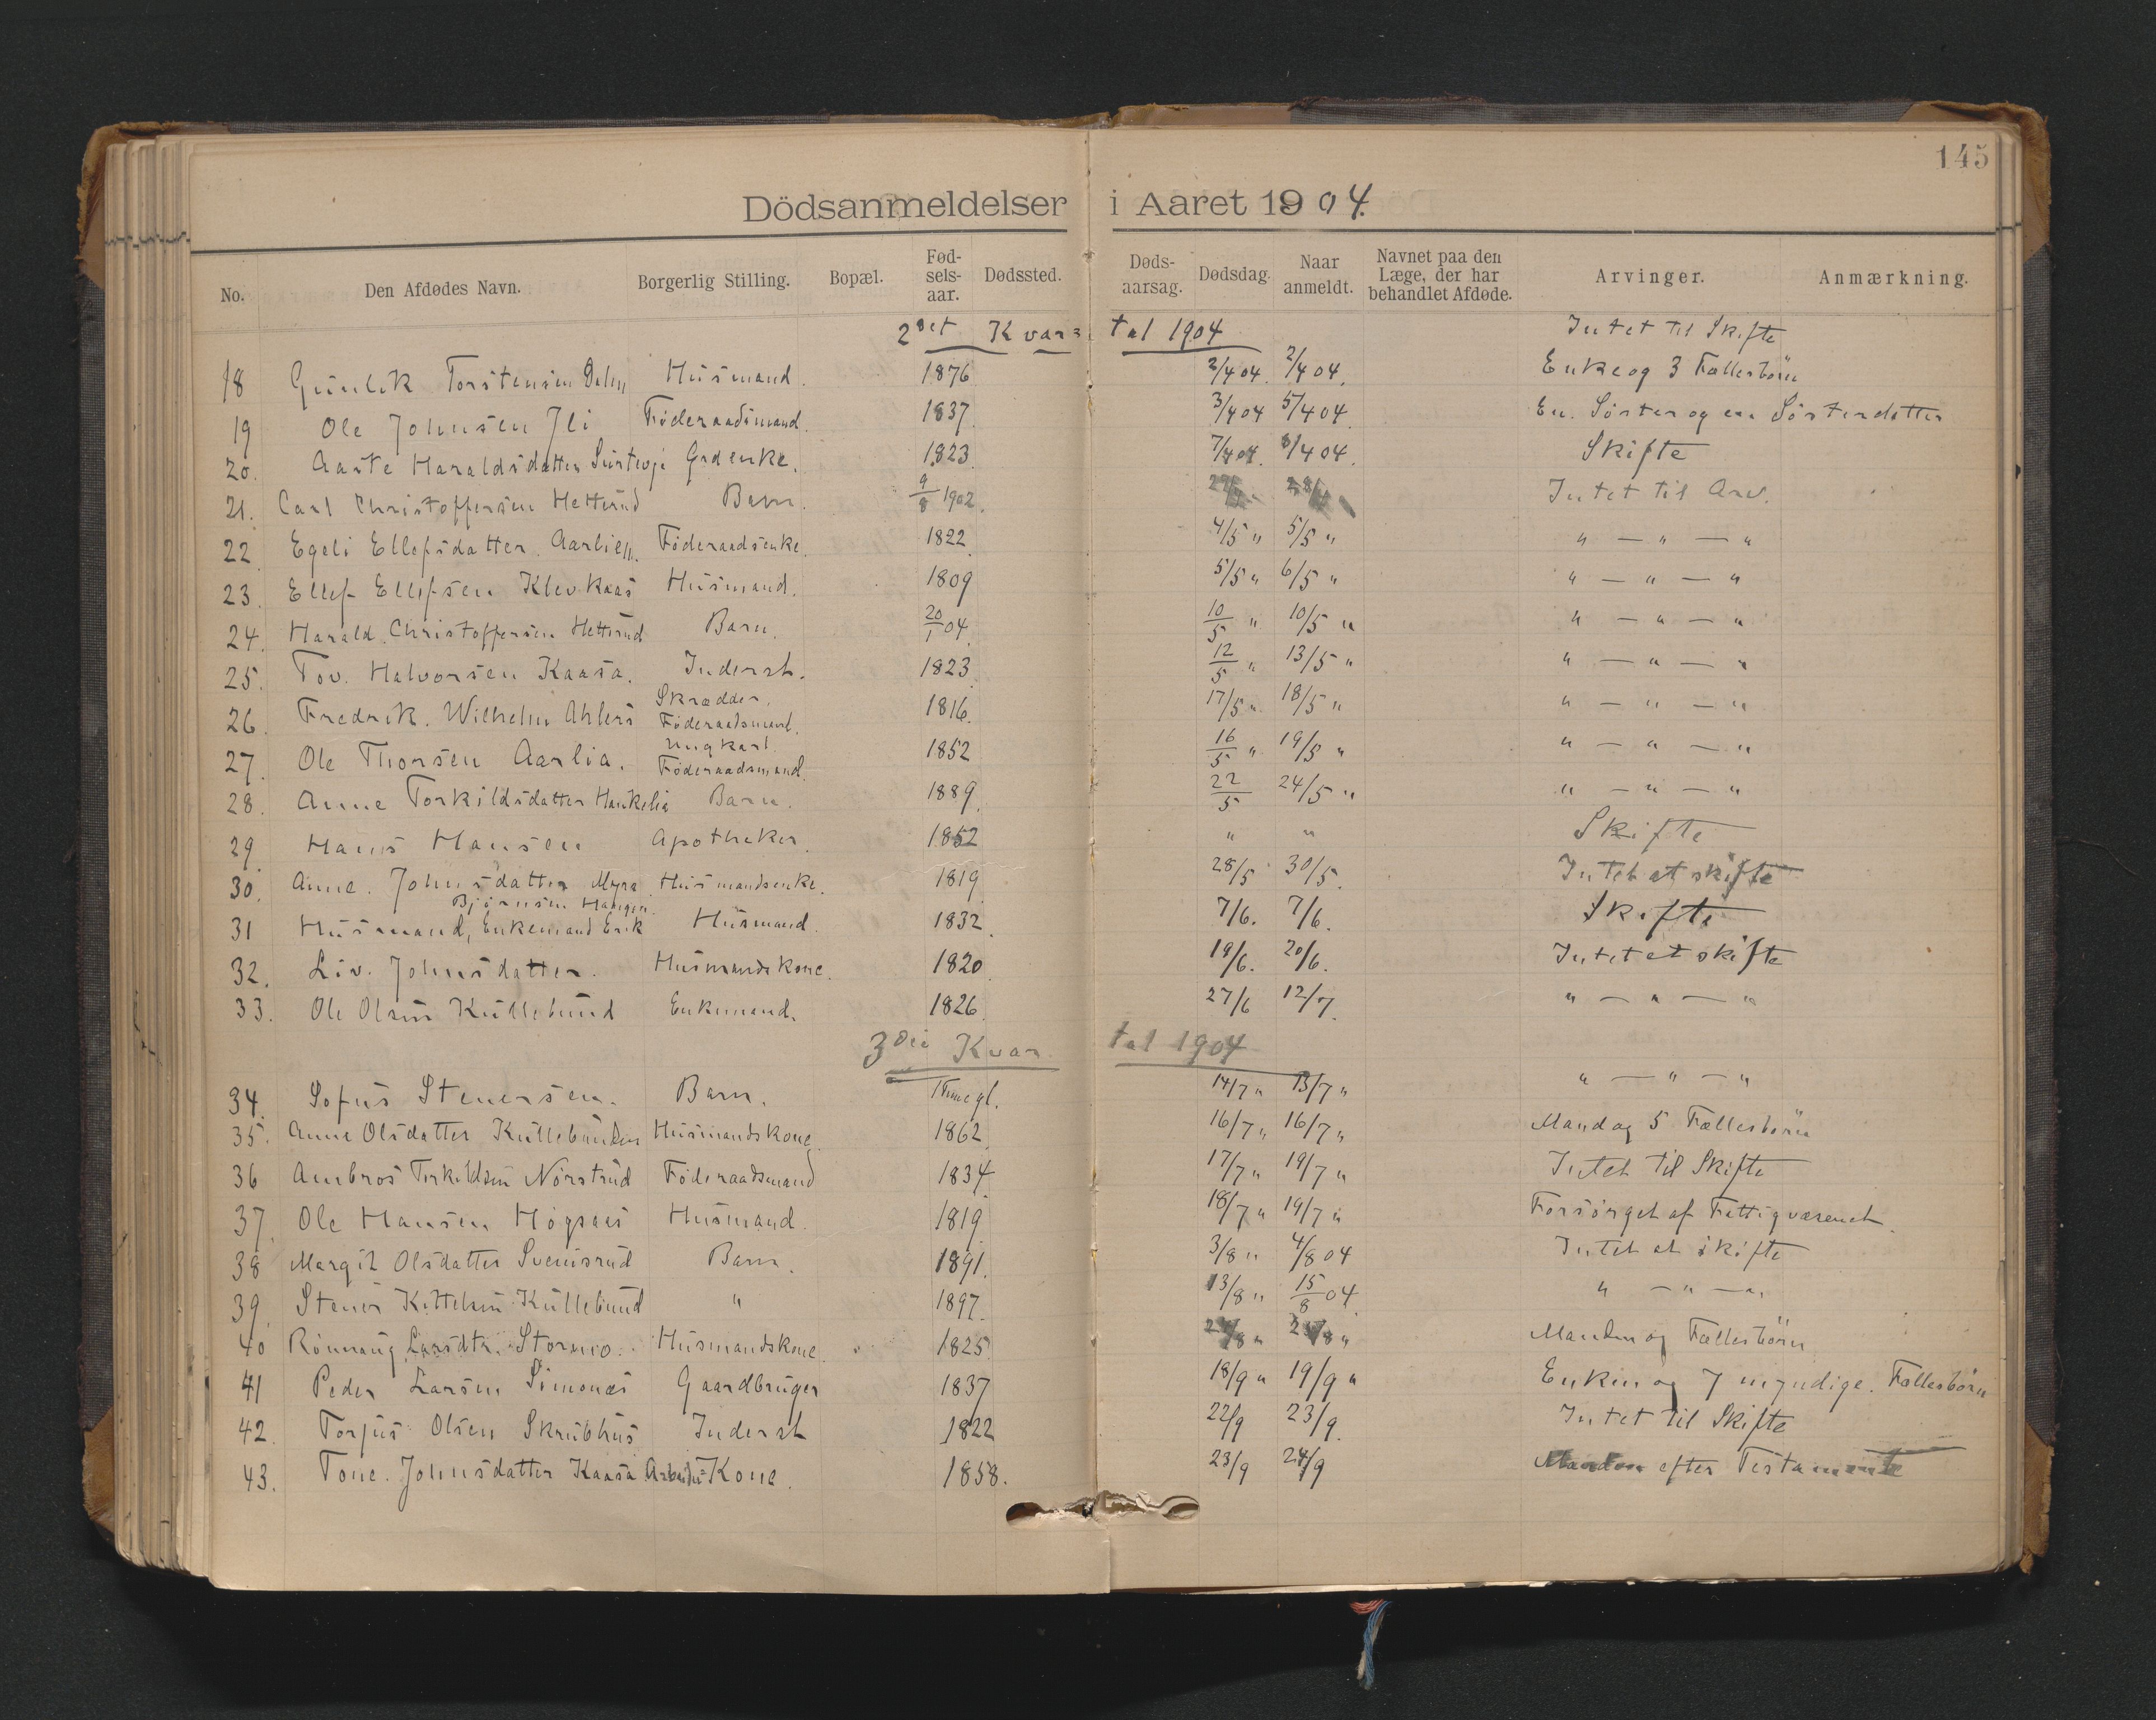 145
Dödsanmeldelser i Aaret 1904.
No. Den Afdødes Navn. Borgerlig Stilling. Bopæl. Fød-sels-aar. Dødssted. Døds-aarsag. Dødsdag. Naar anmeldt. Navnet paa den Læge, der har behandlet Afdøde. Arvinger. Anmærkning.
2det Kvar- tal 1904 Intet til Skifte
18 Gunlek Torstensen Dalen Husmand. 1876 2/4 04. 2/4 04. Enke og 3 Fællesbörn
19 Ole Johnsen Jli Föderaadsmand. 1837. 3/4 04 5/4 04. En Söster og en Sösterdatter
20. Aaste Haraldsdatter Grdenke. 1823 7/4 04. 8/4 04. Skifte
21. Carl Christoffersen Hetterud Barn. 9/8 1902. Intet til Arv.
22 Egeli Ellefsdatter. Aarlien. Föderaadsenke. 1822 4/5 " 5/5 " " — " — "
23. Ellef Ellefsen Klevkaas Husmand. 1809 5/5 " 6/5 " " — " — "
24. Harald Christoffersen Hetterud Barn. 20/1 04. 10/5 " 10/5 " " — " — "
25. Tov. Halvorsen Kaasa. Inderst. 1823. 12/5 " 13/5 " " — " — "
26. Fredrik. Wilhelm Ahlers Skrædder, Föderaadsmand. 1816. 17/5 " 18/5 " " — " — "
27. Ole Thorsen Aarlia. Ungkarl. Föderaadsmand. 1852 16/5 " 19/5 " " — " — "
28. Anne Torkildsdatter Haukelia Barn. 1889. 22/5 24/5 " " — " — "
29. Hans Hansen Apotheker. 1852 " " Skifte
30. Anne. Johnsdatter Myra Husmandsenke. 1819 28/5 30/5. Intet at skifte
Björnsen Haugen.
31 Husmand, Enkemand Erik Husmand. 1832. 7/6. 7/6. Skifte
32. Liv. Johnsdatter. Husmandskone. 1820 19/6. 20/6. Intet at skifte
33. Ole Olsen Kullebund Enkemand. 1826. 27/6 12/7. " — " — "
3die Kvar tal 1904
34. Sofus Stenersen. Barn. 14/7 " 15/7 " " — " — "
35. Anne Olsdatter Kullebunden Husmandskone. 1862. 16/7 " 16/7 " Mand og 5 Fællesbörn
36 Ambros Terkildsen Norstrud Föderaadsmand 1834. 17/7 " 19/7 " Intet til Skifte
37. Ole Hansen Högsaas Husmand. 1819. 18/7 " 19/7 " Forsörget af Fattigvæsenet.
38 Margit Olsdatter Svenisrud Barn. 1891. 3/8 " 4/8 04 Intet at skifte
39. Stener Kittelsen Kullebund " 1897. 13/8 " 15/8 04 " — " — "
40 Rönnaug Larsdtr. Stormo. Husmandskone. 1825. Manden og Fællesbörn
41 Peder Larsen Simonæs Gaardbruger 1837 18/9 " 19/9 " Enken og 7 myndige. Fællesbörn
42. Torjus Olsen Skrubhus Inderst 1822 22/9 23/9. Intet til Skifte
43. Tone. Johnsdatter Kaasa Arbeider-Kone. 1858. 23/9 24/9 Manden efter Testamente